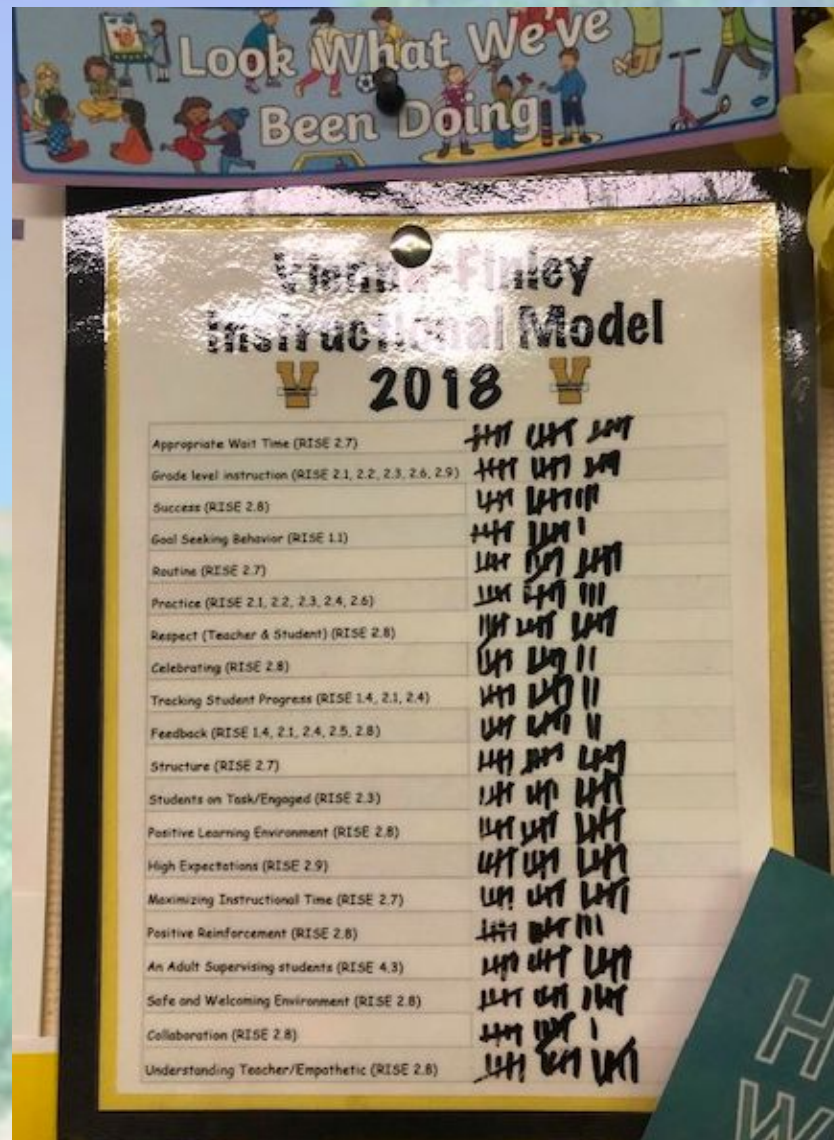 Look What We've
Been Doing
Vienna-Finley
Instructional Model
2018
Appropriate Wait Time (RISE 2.7)
Grade level instruction (RISE 2.1, 2.2, 2.3, 2.6, 2.9)
Success (RISE 2.8)
Goal Seeking Behavior (RISE 1.1)
Routine (RISE 2.7)
Practice (RISE 2.1, 2.2, 2.3, 2.4, 2.6)
Respect (Teacher & Student) (RISE 2.8)
Celebrating (RISE 2.8)
Tracking Student Progress (RISE 1.4, 2.1, 2.4)
Feedback (RISE 1.4, 2.1, 2.4, 2.5, 2.8)
Structure (RISE 2.7)
Students on Task/Engaged (RISE 2.3)
Positive Learning Environment (RISE 2.8)
High Expectations (RISE 2.9)
Maximizing Instructional Time (RISE 2.7)
Positive Reinforcement (RISE 2.8)
An Adult Supervising students (RISE 4.3)
Safe and Welcoming Environment (RISE 2.8)
Collaboration (RISE 2.8)
Understanding Teacher/Empathetic (RISE 2.8)
H
W